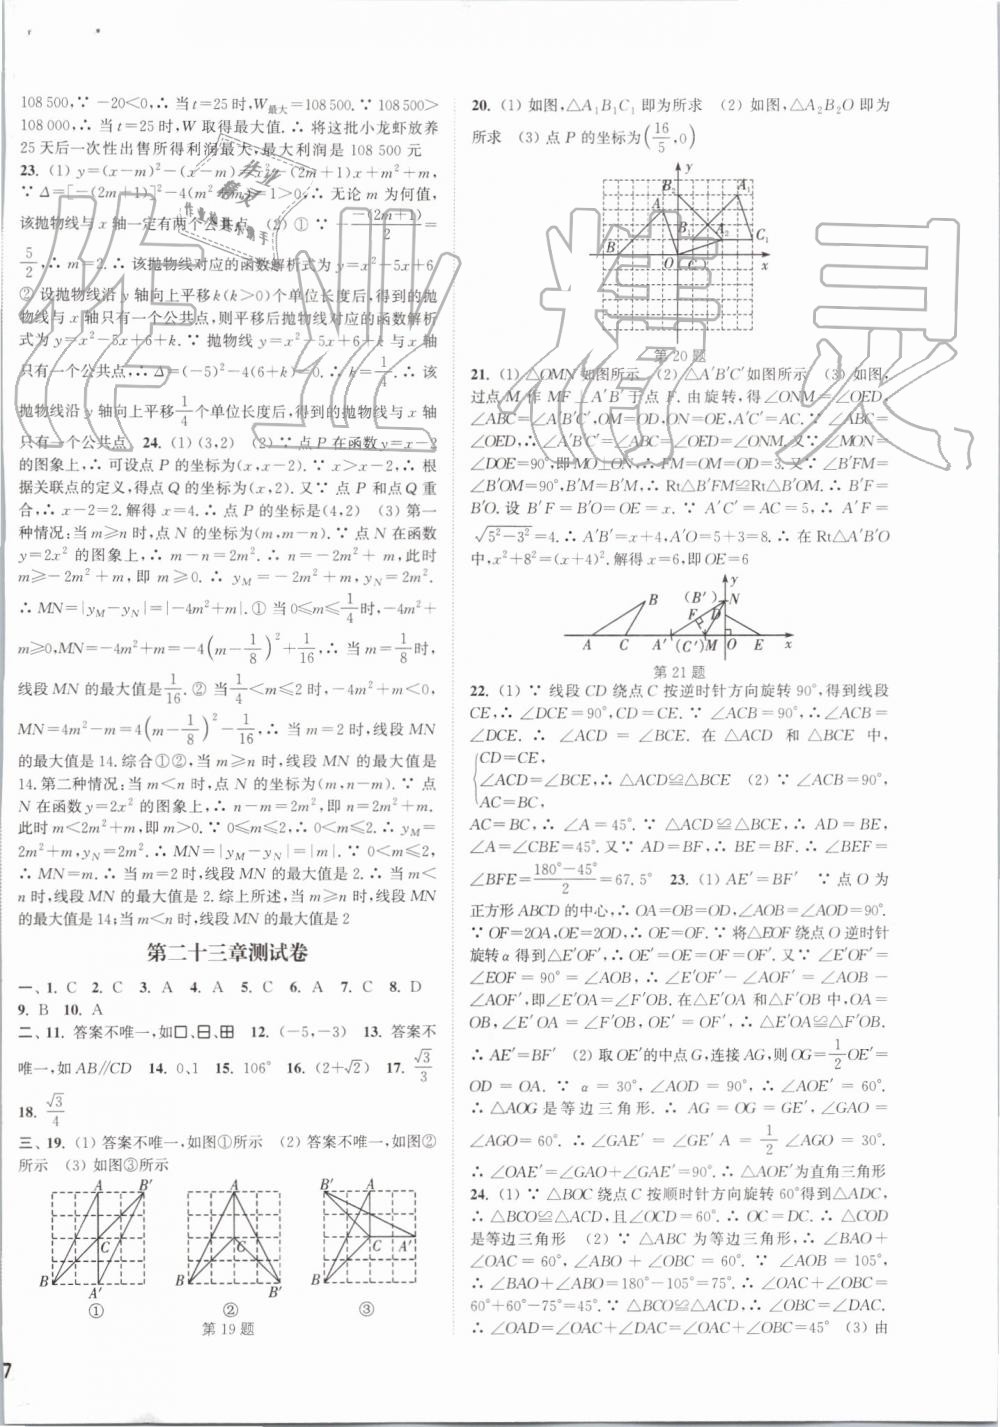 108 500,∵ －20＜0,∴ 当 t＝25 时,W最大＝108 500.∵ 108 500＞
108 000,∴ 当 t＝25 时,W 取得最大值.∴ 将这批小龙虾放养
25 天后一次性出售所得利润最大,最大利润是 108 500 元
23. (1) y＝(x－m)²－(x－m)＝x²－(2m＋1)x＋m²＋m,
∵ Δ＝[－(2m＋1)]²－4(m²＋m)＝1＞0,∴ 无论 m 为何值,
该抛物线与 x 轴一定有两个公共点 (2) ① ∵ －\frac{－(2m＋1)}{2}＝
\frac{5}{2},∴ m＝2.∴ 该抛物线对应的函数解析式为 y＝x²－5x＋6
② 设抛物线沿 y 轴向上平移 k(k＞0)个单位长度后,得到的抛
物线与 x 轴只有一个公共点,则平移后抛物线对应的函数解析
式为 y＝x²－5x＋6＋k.∵ 抛物线 y＝x²－5x＋6＋k 与 x 轴
只有一个公共点,∴ Δ＝(－5)²－4(6＋k)＝0.∴ k＝\frac{1}{4}.∴ 该
抛物线沿 y 轴向上平移\frac{1}{4}个单位长度后,得到的抛物线与 x 轴
只有一个公共点 24. (1) (3,2) (2) ∵ 点 P 在函数 y＝x－2
的图象上,∴ 可设点 P 的坐标为(x,x－2).∵ x＞x－2,∴ 根
据关联点的定义,得点 Q 的坐标为(x,2).又∵ 点 P 和点 Q 重
合,∴ x－2＝2.解得 x＝4.∴ 点 P 的坐标是(4,2) (3) 第一
种情况:当 m≥n 时,点 N 的坐标为(m,m－n).∵ 点 N 在函数
y＝2x² 的图象上,∴ m－n＝2m².∴ n＝－2m²＋m,此时
m≥－2m²＋m,即 m≥0.∴ yM＝－2m²＋m,yN＝2m².
∴ MN＝|yM－yN|＝|－4m²＋m|.① 当 0≤m≤\frac{1}{4}时,－4m²＋
m≥0,MN＝－4m²＋m＝－4(m－\frac{1}{8})²＋\frac{1}{16},∴ 当 m＝\frac{1}{8}时,
线段 MN 的最大值是\frac{1}{16}.② 当\frac{1}{4}＜m≤2 时,－4m²＋m＜0,
MN＝4m²－m＝4(m－\frac{1}{8})²－\frac{1}{16},∴ 当 m＝2 时,线段 MN
的最大值是 14.综合①②,当 m≥n 时,线段 MN 的最大值是
14.第二种情况:当 m＜n 时,点 N 的坐标为(m,n－m).∵ 点
N 在函数 y＝2x² 的图象上,∴ n－m＝2m²,即 n＝2m²＋m.
此时 m＜2m²＋m,即 m＞0.∵ 0≤m≤2,∴ 0＜m≤2.∴ yM＝
2m²＋m,yN＝2m².∴ MN＝|yM－yN|＝|m|.∵ 0＜m≤2,
∴ MN＝m.∴ 当 m＝2 时,线段 MN 的最大值是 2.∴ 当 m＜
n 时,线段 MN 的最大值是 2.综上所述,当 m≥n 时,线段 MN
的最大值是 14;当 m＜n 时,线段 MN 的最大值是 2
第二十三章测试卷
一、1. C 2. C 3. A 4. A 5. C 6. A 7. C 8. D
9. B 10. A
二、11. 答案不唯一,如口、日、田 12. (－5,－3) 13. 答案不
唯一,如 AB∥CD 14. 0、1 15. 106° 16. (2＋√2) 17. \frac{√3}{3}
18. \frac{√3}{4}
三、19. (1) 答案不唯一,如图①所示 (2) 答案不唯一,如图②
所示 (3) 如图③所示
A B′ C B A′ ①
A C B B′ ②
B′ A C A′ B ③
第 19 题
20. (1) 如图,△A₁B₁C₁ 即为所求 (2) 如图,△A₂B₂O 即为
所求 (3) 点 P 的坐标为(\frac{16}{5},0)
y B₂ A₁ A B₁ A₂ C₁ B O C x
第 20 题
21. (1) △OMN 如图所示 (2) △A′B′C′如图所示 (3) 如图,
过点 M 作 MF⊥A′B′于点 F.由旋转,得∠ONM＝∠OED,
∠ABC＝∠A′B′C′,OM＝OD,ON＝OE,A′C′＝AC.∵ ∠ABC＝
∠OED,∴ ∠A′B′C′＝∠ABC＝∠OED＝∠ONM.又∵ ∠MON＝
∠DOE＝90°,即 MO⊥ON,∴ FM＝OM＝OD＝3.又∵ ∠B′FM＝
∠B′OM＝90°,B′M＝B′M,∴ Rt△B′FM≌Rt△B′OM.∴ B′F＝
B′O.设 B′F＝B′O＝OE＝x.∵ A′C′＝AC＝5,∴ A′F＝
√(5²－3²)＝4.∴ A′B′＝x＋4,A′O＝5＋3＝8.∴ 在 Rt△A′B′O
中,x²＋8²＝(x＋4)².解得 x＝6,即 OE＝6
y (B′) N B F D A C A′ (C′) M O E x
第 21 题
22. (1) ∵ 线段 CD 绕点 C 按逆时针方向旋转 90°,得到线段
CE,∴ ∠DCE＝90°,CD＝CE.∵ ∠ACB＝90°,∴ ∠ACB＝
∠DCE.∴ ∠ACD＝∠BCE.在△ACD 和△BCE 中,
CD＝CE,
∠ACD＝∠BCE,∴ △ACD≌△BCE (2) ∵ ∠ACB＝90°,
AC＝BC,
AC＝BC,∴ ∠A＝45°.∵ △ACD≌△BCE,∴ AD＝BE,
∠A＝∠CBE＝45°.又∵ AD＝BF,∴ BE＝BF.∴ ∠BEF＝
∠BFE＝\frac{180°－45°}{2}＝67.5° 23. (1) AE′＝BF′ ∵ 点 O 为
正方形 ABCD 的中心,∴ OA＝OB＝OD,∠AOB＝∠AOD＝90°.
∵ OF＝2OA,OE＝2OD,∴ OE＝OF.∵ 将△EOF 绕点 O 逆时针
旋转 α 得到△E′OF′,∴ OE′＝OE＝OF＝OF′.又∵ ∠E′OF′＝
∠EOF＝90°＝∠AOB,∴ ∠E′OF′－∠AOF′＝∠AOB－
∠AOF′,即∠E′OA＝∠F′OB.在△E′OA 和△F′OB 中,OA＝
OB,∠E′OA＝∠F′OB,OE′＝OF′,∴ △E′OA≌△F′OB.
∴ AE′＝BF′ (2) 取 OE′的中点 G,连接 AG,则 OG＝\frac{1}{2}OE′＝
OD＝OA.∵ α＝30°,∠AOD＝90°,∴ ∠AOE′＝60°.
∴ △AOG 是等边三角形.∴ AG＝OG＝GE′,∠GAO＝
∠AGO＝60°.∴ ∠GAE′＝∠GE′A＝\frac{1}{2}∠AGO＝30°.
∴ ∠OAE′＝∠GAO＋∠GAE′＝90°.∴ △AOE′为直角三角形
24. (1) ∵ △BOC 绕点 C 按顺时针方向旋转 60°得到△ADC,
∴ △BCO≌△ADC,且∠OCD＝60°.∴ OC＝DC.∴ △COD
是等边三角形 (2) ∵ △ABC 为等边三角形,∴ ∠BAO＋
∠OAC＝60°,∠ABO＋∠OBC＝60°.∵ ∠AOB＝105°,
∴ ∠BAO＋∠ABO＝180°－105°＝75°.∴ ∠OAC＋∠OBC＝
60°＋60°－75°＝45°.∵ △BCO≌△ADC,∴ ∠OBC＝∠DAC.
∴ ∠OAD＝∠OAC＋∠DAC＝∠OAC＋∠OBC＝45° (3) 由
7
作业精灵